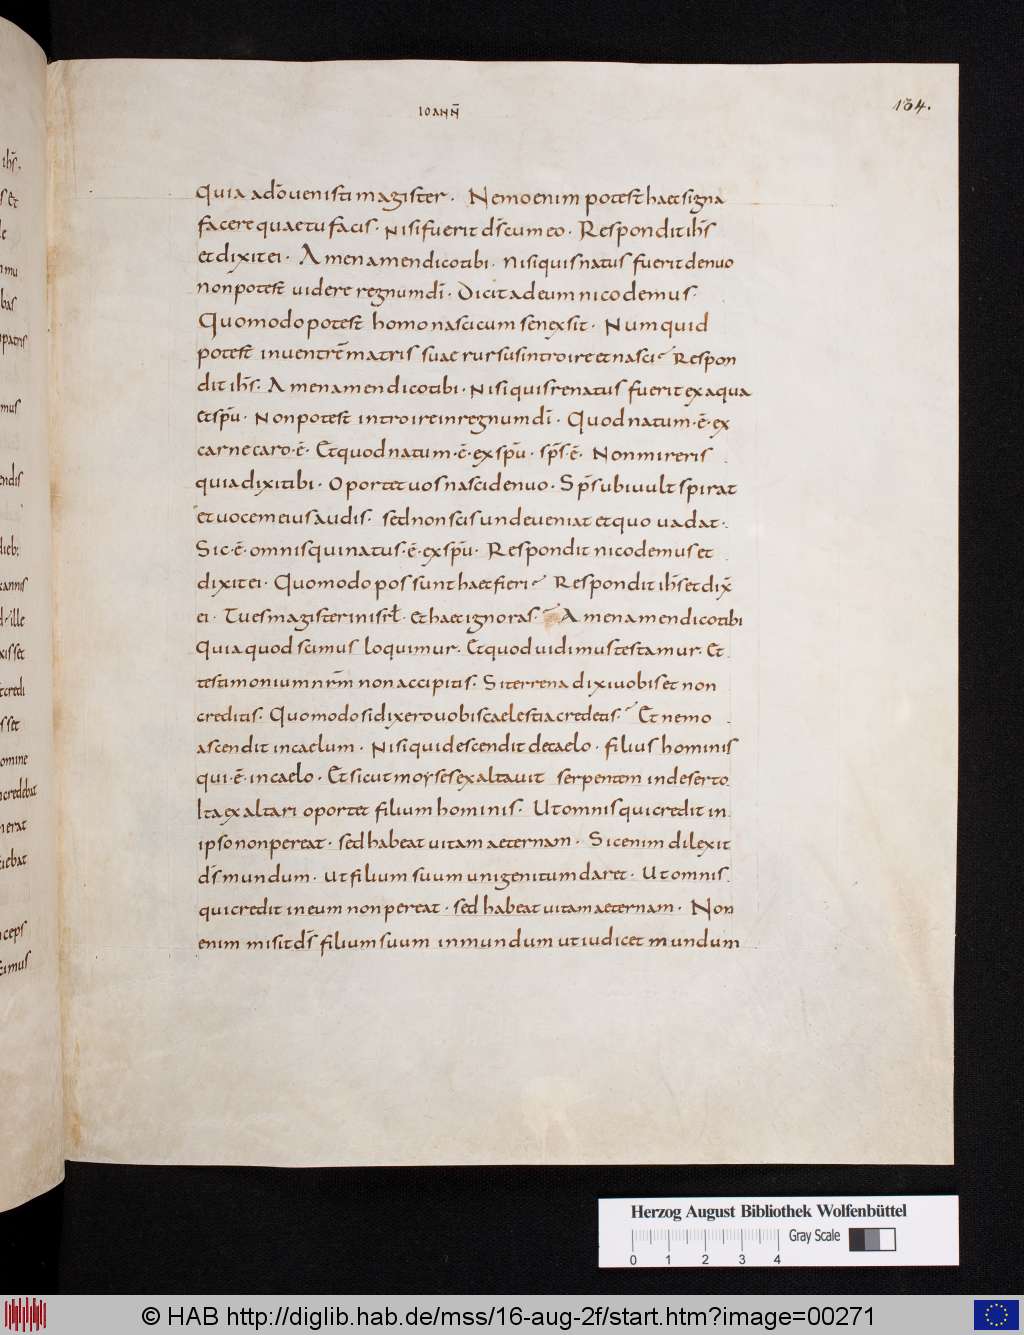 IOANN̄
184.
Quia ad̄o uenisti magister. Nemo enim potest haec signa
facere quae tu facis. Nisi fuerit d̄s cum eo. Respondit ih̄s
et dixit ei. Amen amen dico tibi. Nisi quis natus fuerit denuo
non potest uidere regnum dī. Dicit ad eum nicodemus.
Quomodo potest homo nasci cum senex sit. Numquid
potest in uentrē matris suae rursus introire et nasci. Respon
dit ih̄s. Amen amen dico tibi. Nisi quis renatus fuerit ex aqua
et sp̄u. Non potest introire in regnum dī. Quod natum .ē. ex
carne caro .ē. Et quod natum .ē. ex sp̄u. sp̄s .ē. Non mireris
quia dixi tibi. Oportet uos nasci denuo. Sp̄s ubi uult spirat
et uocem eius audis. sed non scis unde ueniat et quo uadat.
Sic .ē. omnis qui natus .ē. ex sp̄u. Respondit nicodemus et
dixit ei. Quomodo possunt haec fieri. Respondit ih̄s et dix̄
ei. Tu es magister in isrł. Et haec ignoras. Amen amen dico tibi
Quia quod scimus loquimur. Et quod uidimus testamur. Et
testimonium nr̄m non accipitis. Si terrena dixi uobis et non
creditis. Quomodo si dixero uobis caelestia credetis. Et nemo
ascendit in caelum. Nisi qui descendit de caelo. filius hominis
qui .ē. in caelo. Et sicut moyses exaltauit serpentem in deserto
Ita exaltari oportet filium hominis. Ut omnis qui credit in
ipso non pereat. sed habeat uitam aeternam. Sic enim dilexit
d̄s mundum. ut filium suum unigenitum daret. Ut omnis
qui credit in eum non pereat. sed habeat uitam aeternam. Non
enim misit d̄s filium suum in mundum ut iudicet mundum
Herzog August Bibliothek Wolfenbüttel
Gray Scale
0 1 2 3 4
© HAB http://diglib.hab.de/mss/16-aug-2f/start.htm?image=00271